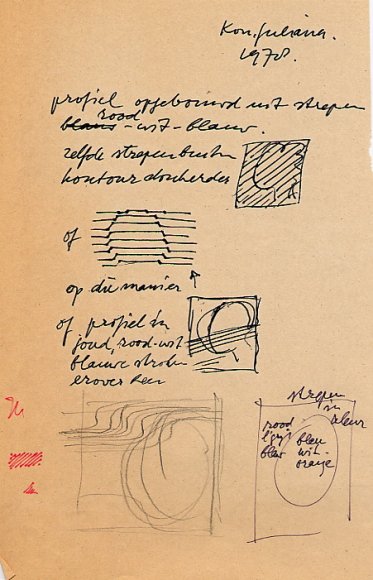 Kon. Juliana.
1978.
profiel opgebouwd uit strepen
rood
blauw - wit - blauw.
zelfde strepen buiten
kontour donkerder
of
op die manier
of profiel in
goud, rood-wit
blauwe stroken
erover heen
strepen
in
kleur
rood
blauw
wit-
oranje